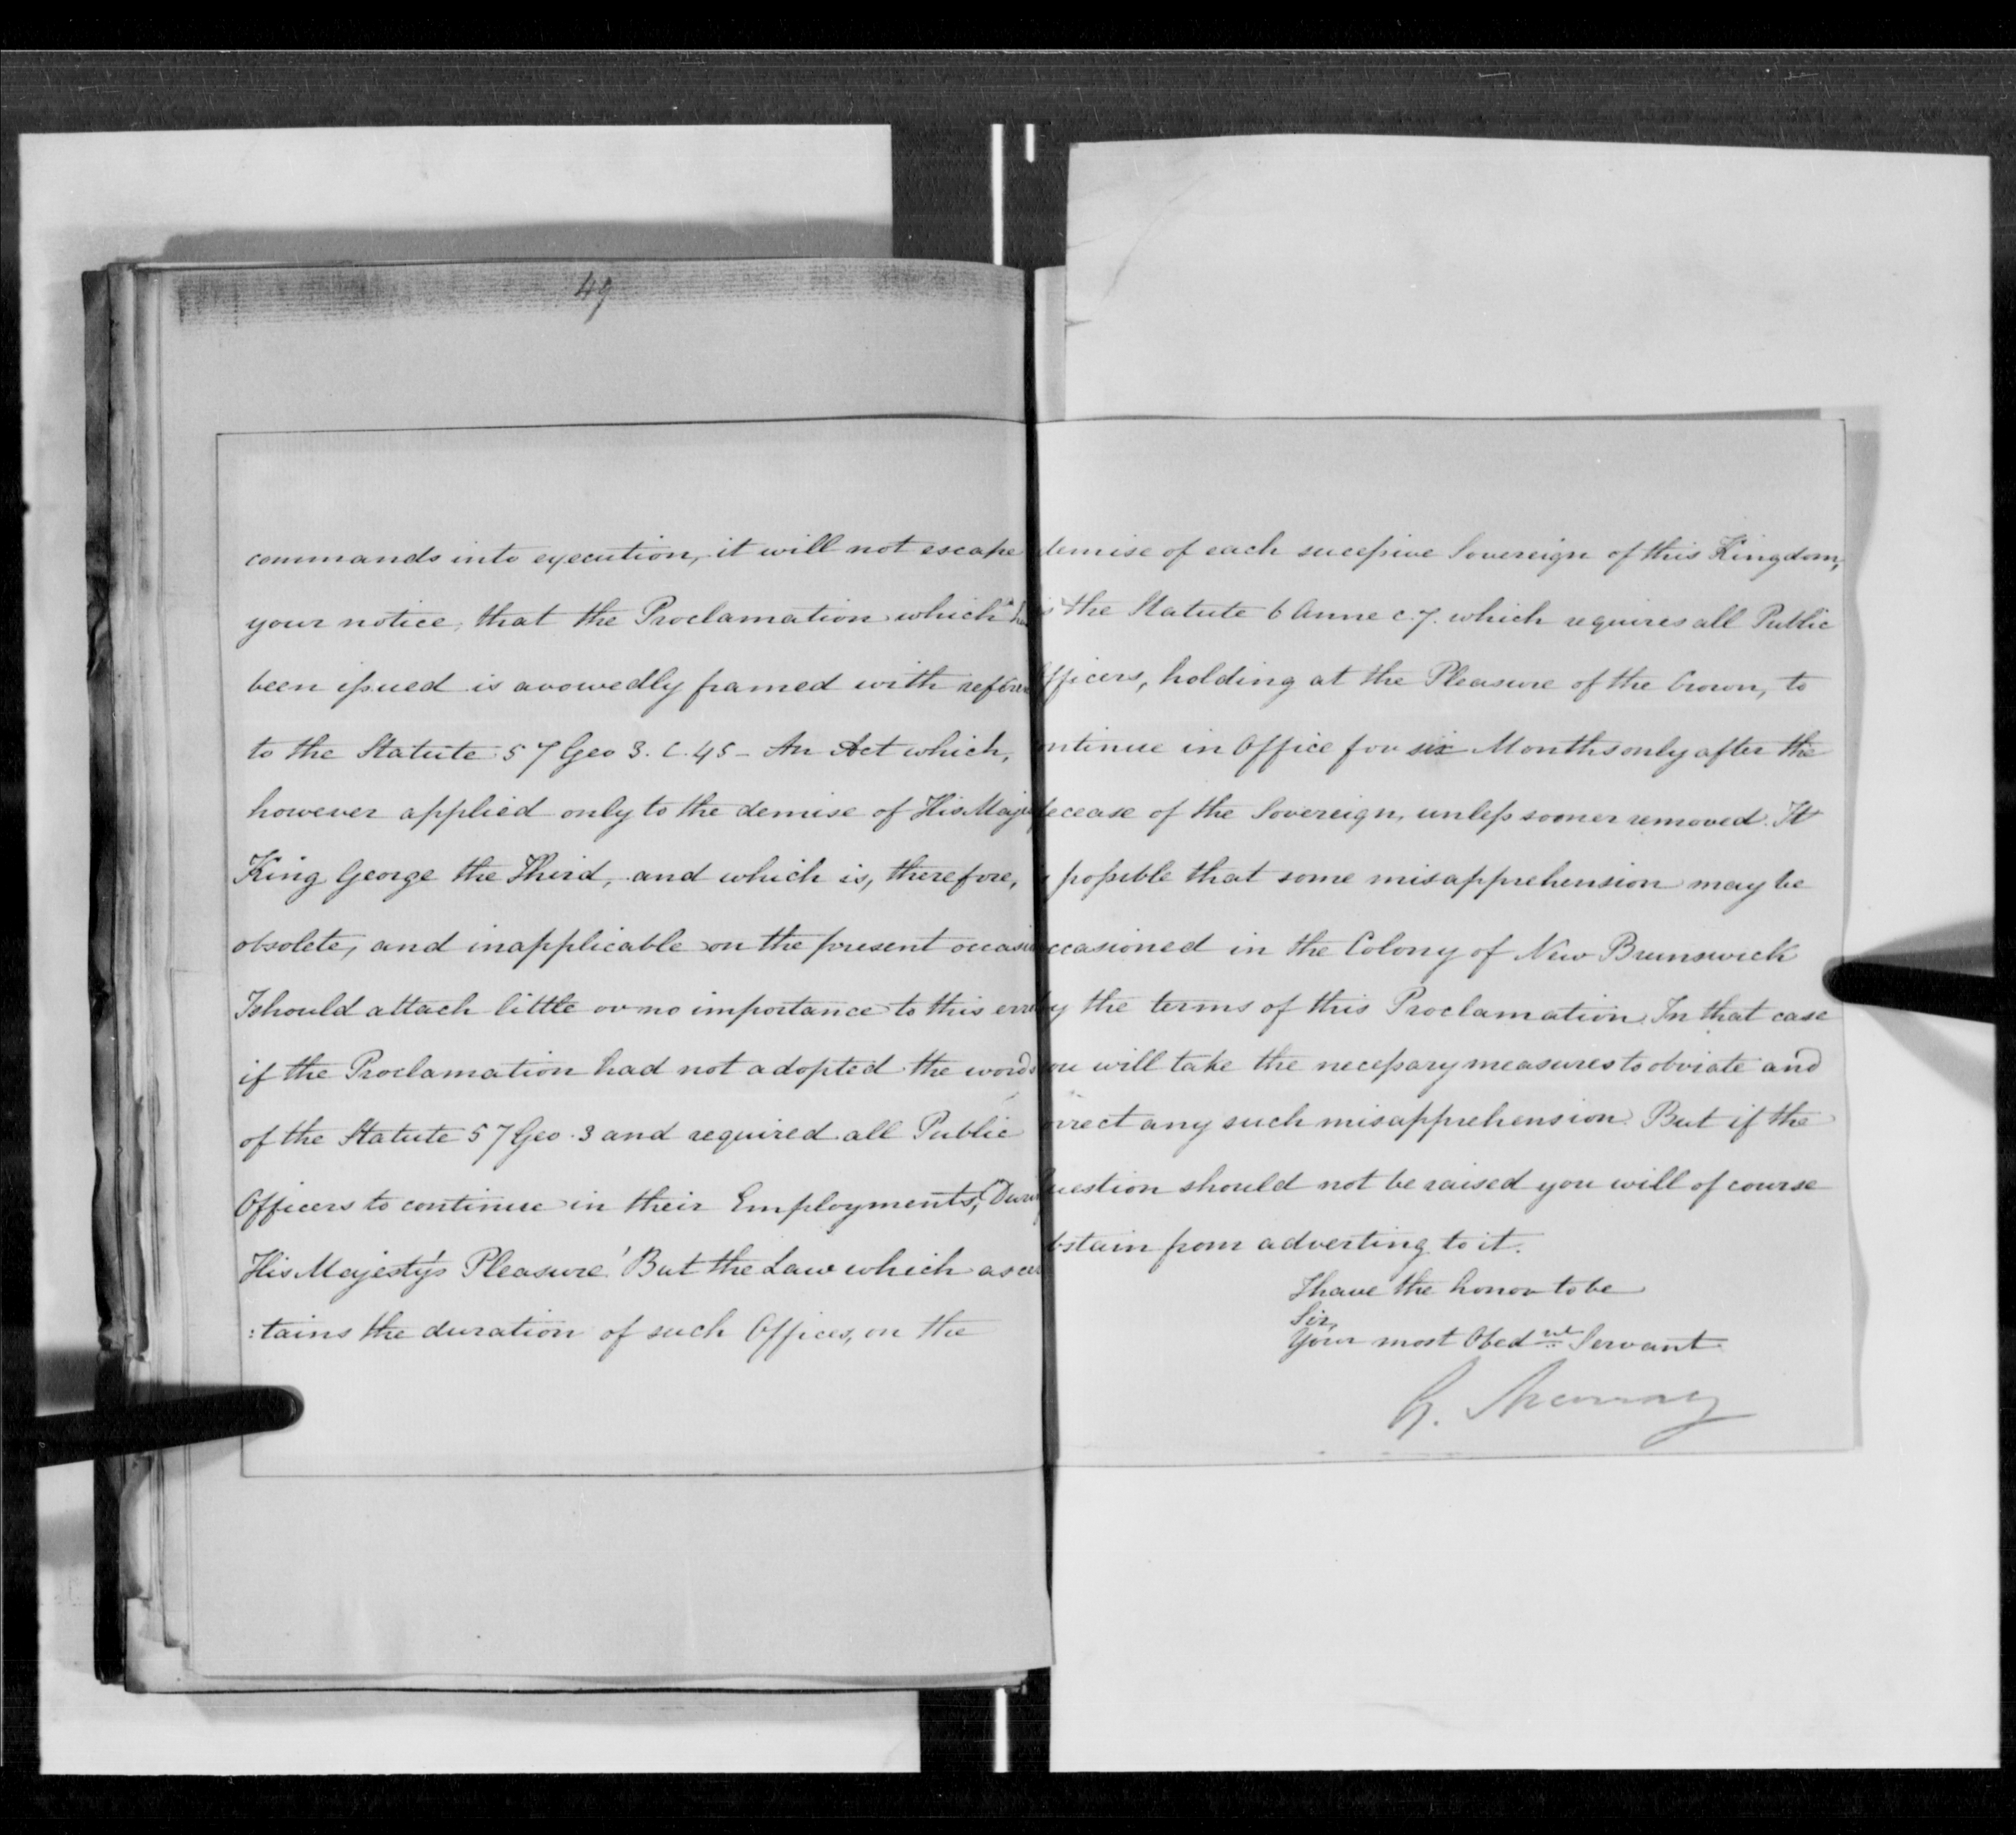 49
commands into execution, it will not escape
your notice, that the Proclamation which
been issued is avowedly framed with refere
to the Statute 57 Geo 3. C. 45 - An Act which,
however applied only to the demise of His Maje
King George the Third, and which is, therefore,
obsolete, and inapplicable on the present occasi
I should attach little or no importance to this err
if the Proclamation had not adopted the words
of the Statute 57 Geo. 3 and required all Public
Officers to continue in their Employments, "Duri
His Majesty's Pleasure.' But the Law which ascer
:tains the duration of such Offices, on the
demise of each successive Sovereign of this Kingdom,
is the Statute 6 Anne c. 7. which requires all Public
Officers, holding at the Pleasure of the Crown, to
ontinue in Office for six Months only after the
decease of the Sovereign, unless sooner removed. It
possible that some misapprehension may be
occasioned in the Colony of New Brunswick
by the terms of this Proclamation. In that case
you will take the necessary measures to obviate and
orrect any such misapprehension. But if the
Question should not be raised you will of course
bstain from adverting to it.
I have the honor to be
Sir,
Your most Obed.nt Servant
G. Murray